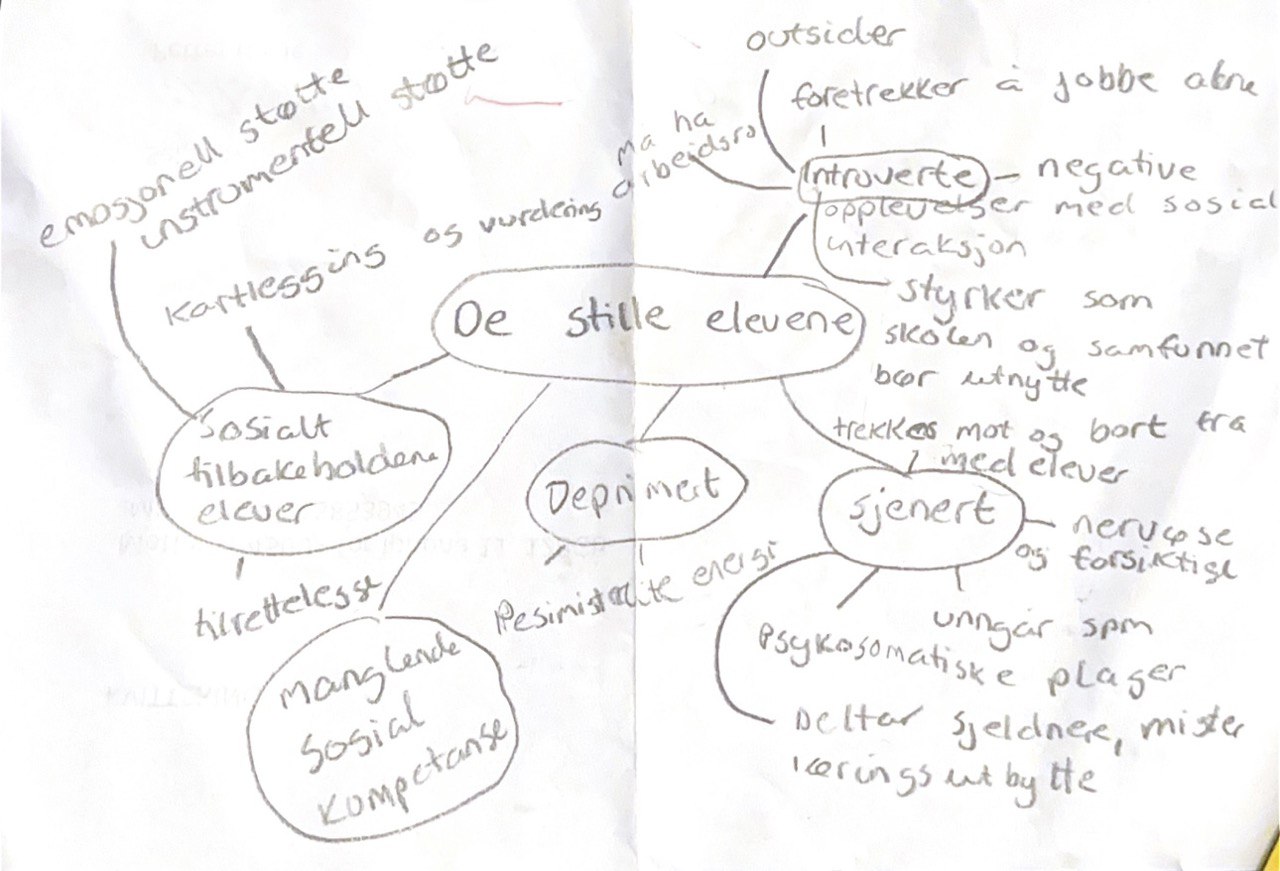 outsider
foretrekker å jobbe alene
må ha
arbeidsro
Introverte - negative
opplevelser med sosial
interaksjon
styrker som
skolen og samfunnet
bør utnytte
emosjonell støtte
instrumentell støtte
Kartlegging og vurdering
De stille elevene
Sosialt
tilbakeholdene
elever
tilrettelegge
Manglende
sosial
kompetanse
Deprimert
Pesimist
lite energi
trekkes mot og bort fra
med elever
sjenert
nervøse
og forsiktige
unngår spm
Psykosomatiske plager
Deltar sjeldnere, mister
læringsutbytte